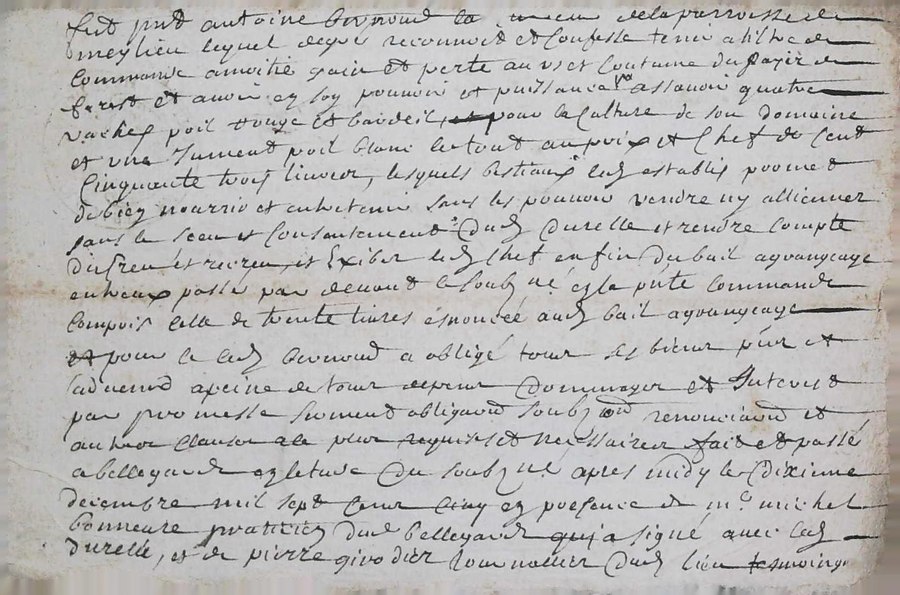 fut pnt antoine bernoud la de la parroisse de
meylieu lequel degré reconnoit et Confesse tenir a tiltre de
Commande a moitié gain et perte au us et Coutume du payis de
forest et avoir en soy pouvoir et puissance assavoir quatre
vaches poil rouge et bardeil, pour la Culture de son domaine
et une Jument poil blanc le tout au prix et Chef de Cent
Cinquante trois livres, lesquels bestiaux led establis promet
de bien nourrir et entretenir sans les pouvoir vendre ny alliener
sans le sceu et Consantement dud durelle et rendre Compte
du Creu et recreu, et Exiber led Chef en fin du bail a grangeage
entreux passé par devant le soubzné en la pnte Commande
Compris Celle de trente livres énoncée aud bail a grangeage
et pour Ce led bernoud a obligé tous ses biens pnt et
advenir a peine de tous depens Dommages et Interest
par promesse serment obligaons soubzon renonciaons et
autres Clauses a la plus requises et nécéssaires fait et passé
a bellegarde en letude Du soubzné apres midy le Dixieme
decembre mil sept Cens Cinq en presence de mre michel
bonneure praticien dud bellegarde qui a signé avec led
durelle, et de pierre givodier tournollier dud lieu tesmoings